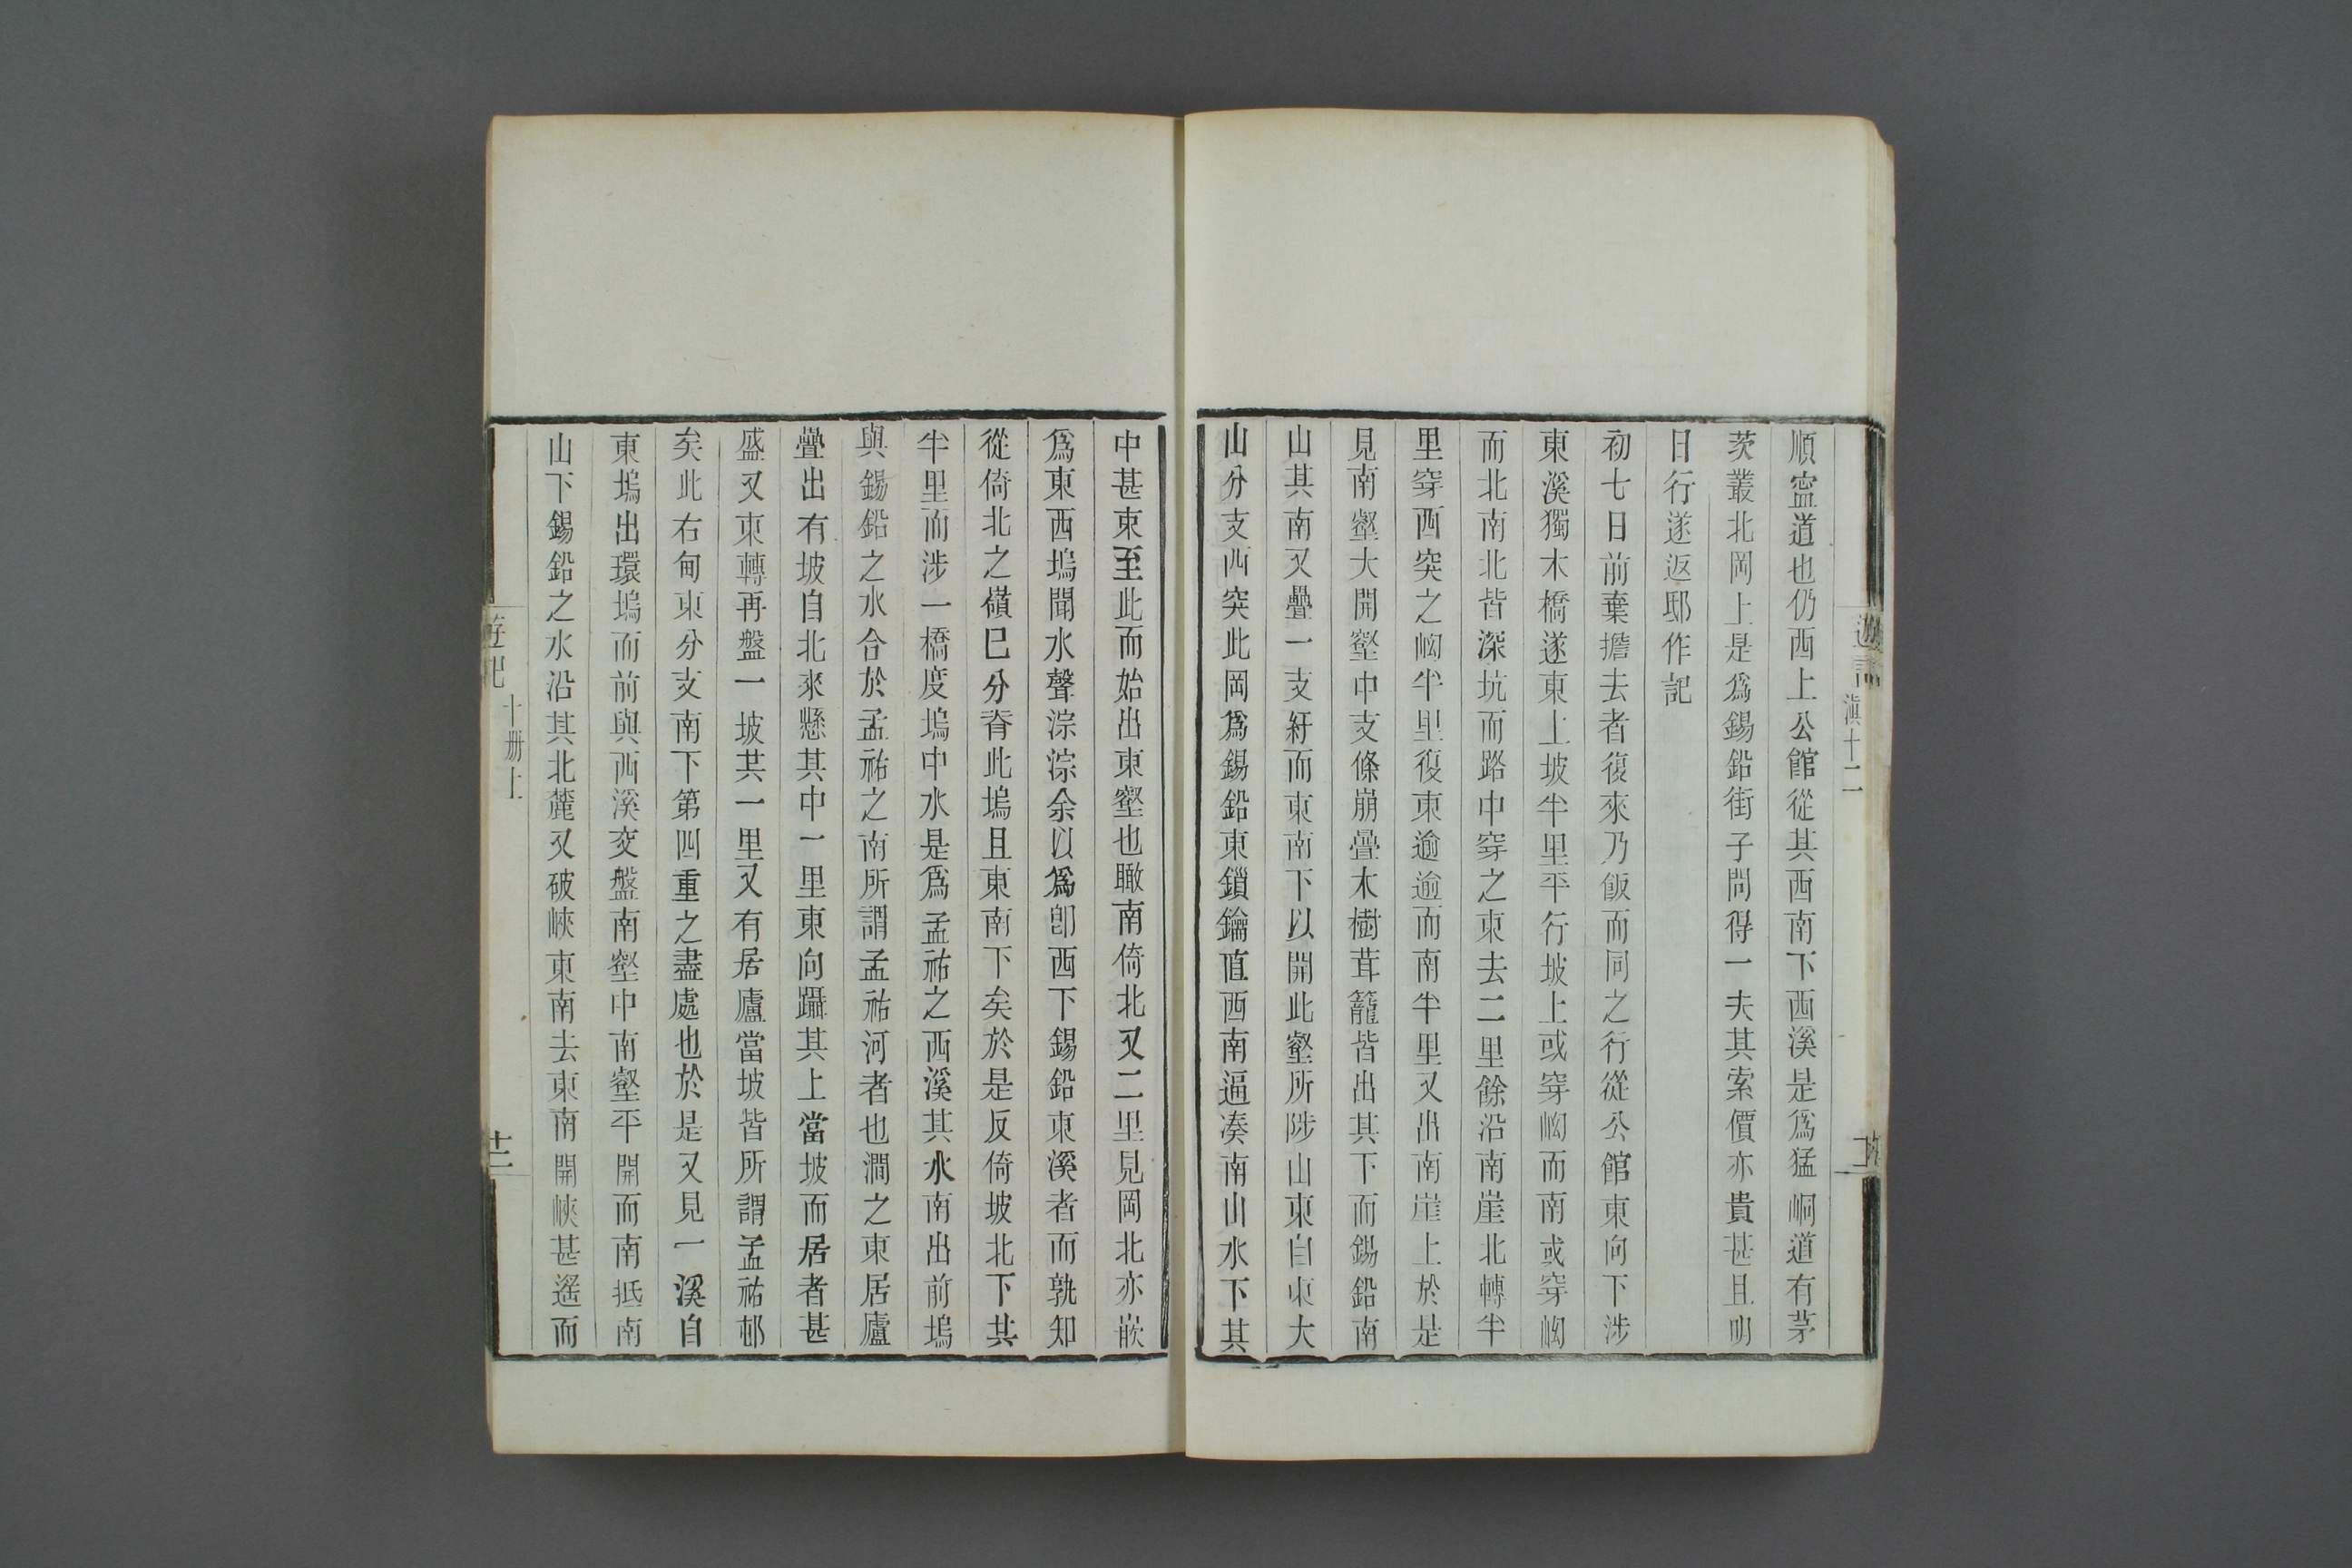 遊記
滇十二
順寍道也仍西上公館從其西南下西溪是爲猛峒道有茅
茨叢北岡上是爲錫鉛街子問得一夫其索價亦貴甚且明
日行遂返邸作記
初七日前棄擔去者復來乃飯而同之行從公館東向下涉
東溪獨木橋遂東上坡半里平行坡上或穿峽而南或穿峽
而北南北皆深坑而路中穿之東去二里餘沿南崖北轉半
里穿西突之峽半里復東逾逾而南半里又出南崖上於是
見南壑大開壑中支條崩疊木樹茸蘢皆出其下而錫鉛南
山其南又疊一支紆而東南下以開此壑所陟山東自東大
山分支西突此岡爲錫鉛東鎖鑰直西南逼凑南山水下其
中甚東至此而始出東壑也瞰南倚北又二里見岡北亦嵌
爲東西塢聞水聲淙淙余以爲卽西下錫鉛東溪者而孰知
從倚北之嶺巳分脊此塢且東南下矣於是反倚坡北下其
半里而涉一橋度塢中水是爲孟祐之西溪其水南出前塢
與錫鉛之水合於孟祐之南所謂孟祐河者也澗之東居廬
疊出有坡自北來懸其中一里東向躡其上當坡而居者甚
盛又東轉再盤一坡共一里又有居廬當坡皆所謂孟祐邨
矣此右甸東分支南下第四重之盡處也於是又見一溪自
東塢出環塢而前與西溪交盤南壑中南壑平開而南抵南
山下錫鉛之水沿其北麓又破峽東南去東南開峽甚遙而
遊記
十册上
十二